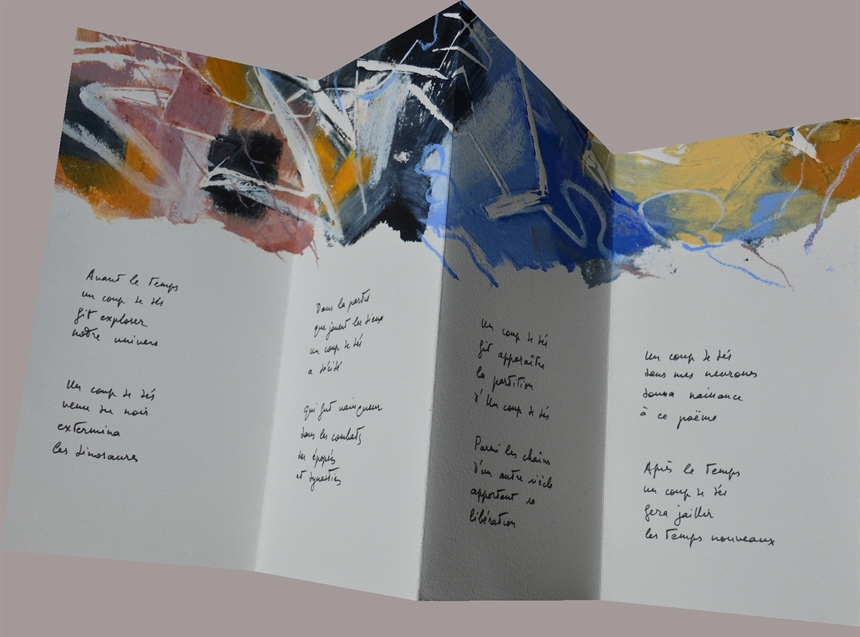 Avant le Temps
un coup de dés
fit exploser
notre univers
Un coup de dés
venu du noir
extermina
les dinosaures
Dans la partie
que jouent les dieux
un coup de dés
a décidé
Qui fut vainqueur
dans les combats
des épopées
et dynasties
Un coup de dés
fit apparaître
la partition
d'Un coup de dés
Parmi les chaînes
d'un autre siècle
apportant sa
libération
Un coup de dés
dans mes neurones
donna naissance
à ce poème
Après le Temps
un coup de dés
fera jaillir
les Temps nouveaux